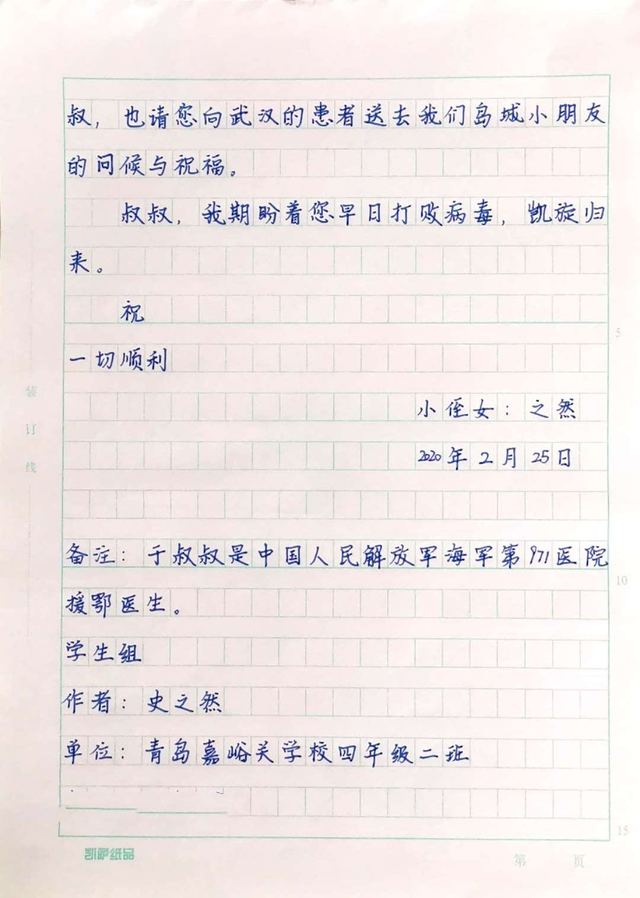 叔，也请您向武汉的患者送去我们岛城小朋友
的问候与祝福。
叔叔，我期盼着您早日打败病毒，凯旋归
来。
祝
5
一切顺利
装
订
线
小侄女：之然
2020年2月25日
备注：于叔叔是中国人民解放军海军第971医院
10
援鄂医生。
学生组
作者：史之然
单位：青岛嘉峪关学校四年级二班
15
第 页